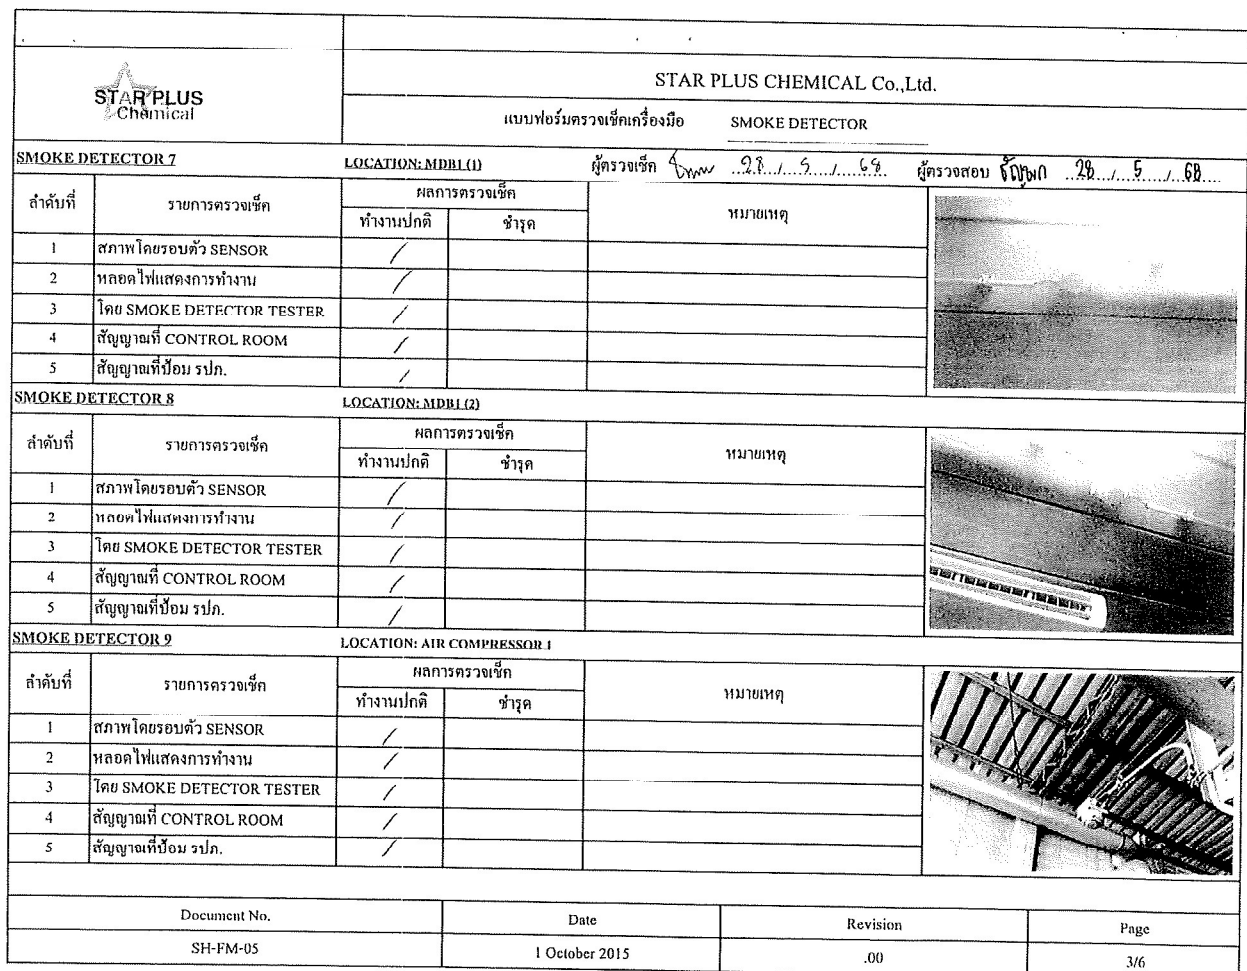 STAR PLUS
Chemical
STAR PLUS CHEMICAL Co.,Ltd.
แบบฟอร์มตรวจเช็คเครื่องมือ SMOKE DETECTOR
SMOKE DETECTOR 7 LOCATION: MDB1 (1) ผู้ตรวจเช็ค 28 / 5 / 68 ผู้ตรวจสอบ 28 / 5 / 68
ลำดับที่ รายการตรวจเช็ค ผลการตรวจเช็ค หมายเหตุ
ทำงานปกติ ชำรุด
1 สภาพโดยรอบตัว SENSOR /
2 หลอดไฟแสดงการทำงาน /
3 โดย SMOKE DETECTOR TESTER /
4 สัญญาณที่ CONTROL ROOM /
5 สัญญาณที่ป้อม รปภ. /
SMOKE DETECTOR 8 LOCATION: MDB1 (2)
ลำดับที่ รายการตรวจเช็ค ผลการตรวจเช็ค หมายเหตุ
ทำงานปกติ ชำรุด
1 สภาพโดยรอบตัว SENSOR /
2 หลอดไฟแสดงการทำงาน /
3 โดย SMOKE DETECTOR TESTER /
4 สัญญาณที่ CONTROL ROOM /
5 สัญญาณที่ป้อม รปภ. /
SMOKE DETECTOR 9 LOCATION: AIR COMPRESSOR 1
ลำดับที่ รายการตรวจเช็ค ผลการตรวจเช็ค หมายเหตุ
ทำงานปกติ ชำรุด
1 สภาพโดยรอบตัว SENSOR /
2 หลอดไฟแสดงการทำงาน /
3 โดย SMOKE DETECTOR TESTER /
4 สัญญาณที่ CONTROL ROOM /
5 สัญญาณที่ป้อม รปภ. /
Document No. Date Revision Page
SH-FM-05 1 October 2015 .00 3/6